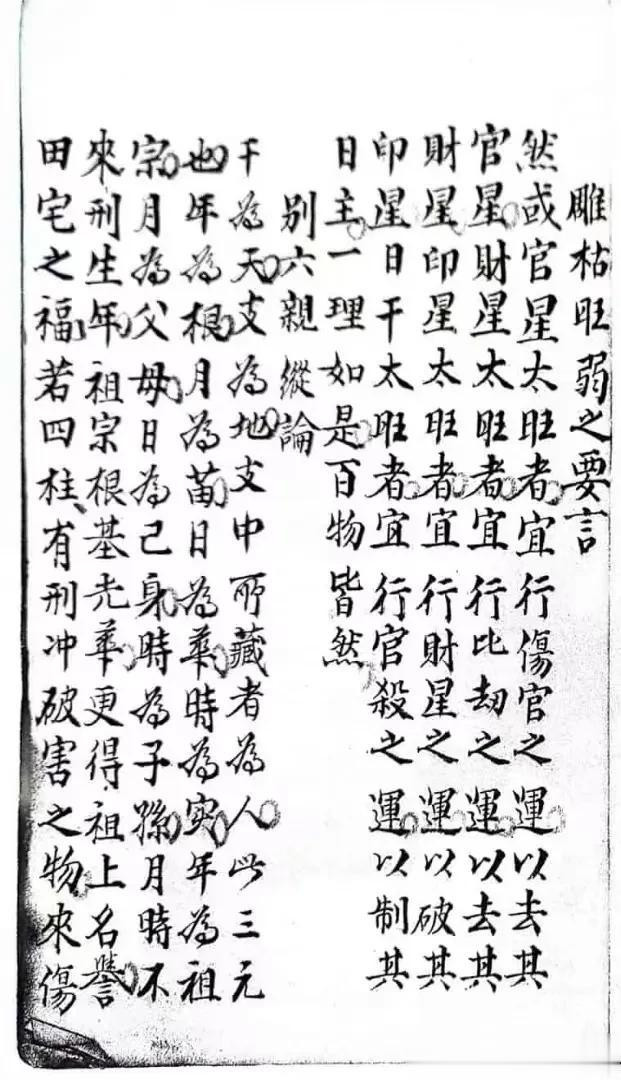 雕枯旺弱之要言
然或官星太旺者宜行傷官之運以去其
官星財星太旺者宜行比劫之運以去其
財星印星太旺者宜行財星之運以破其
印星日干太旺者宜行官殺之運以制其
日主一理如是百物皆然
别六親縱論
干為天支為地支中所藏者為人此三元
也年為根月為苗日為華時為实年為祖
宗月為父母日為己身時為子孫月時不
來刑生年祖宗根基光華更得祖上名譽
田宅之福若四柱有刑冲破害之物來傷